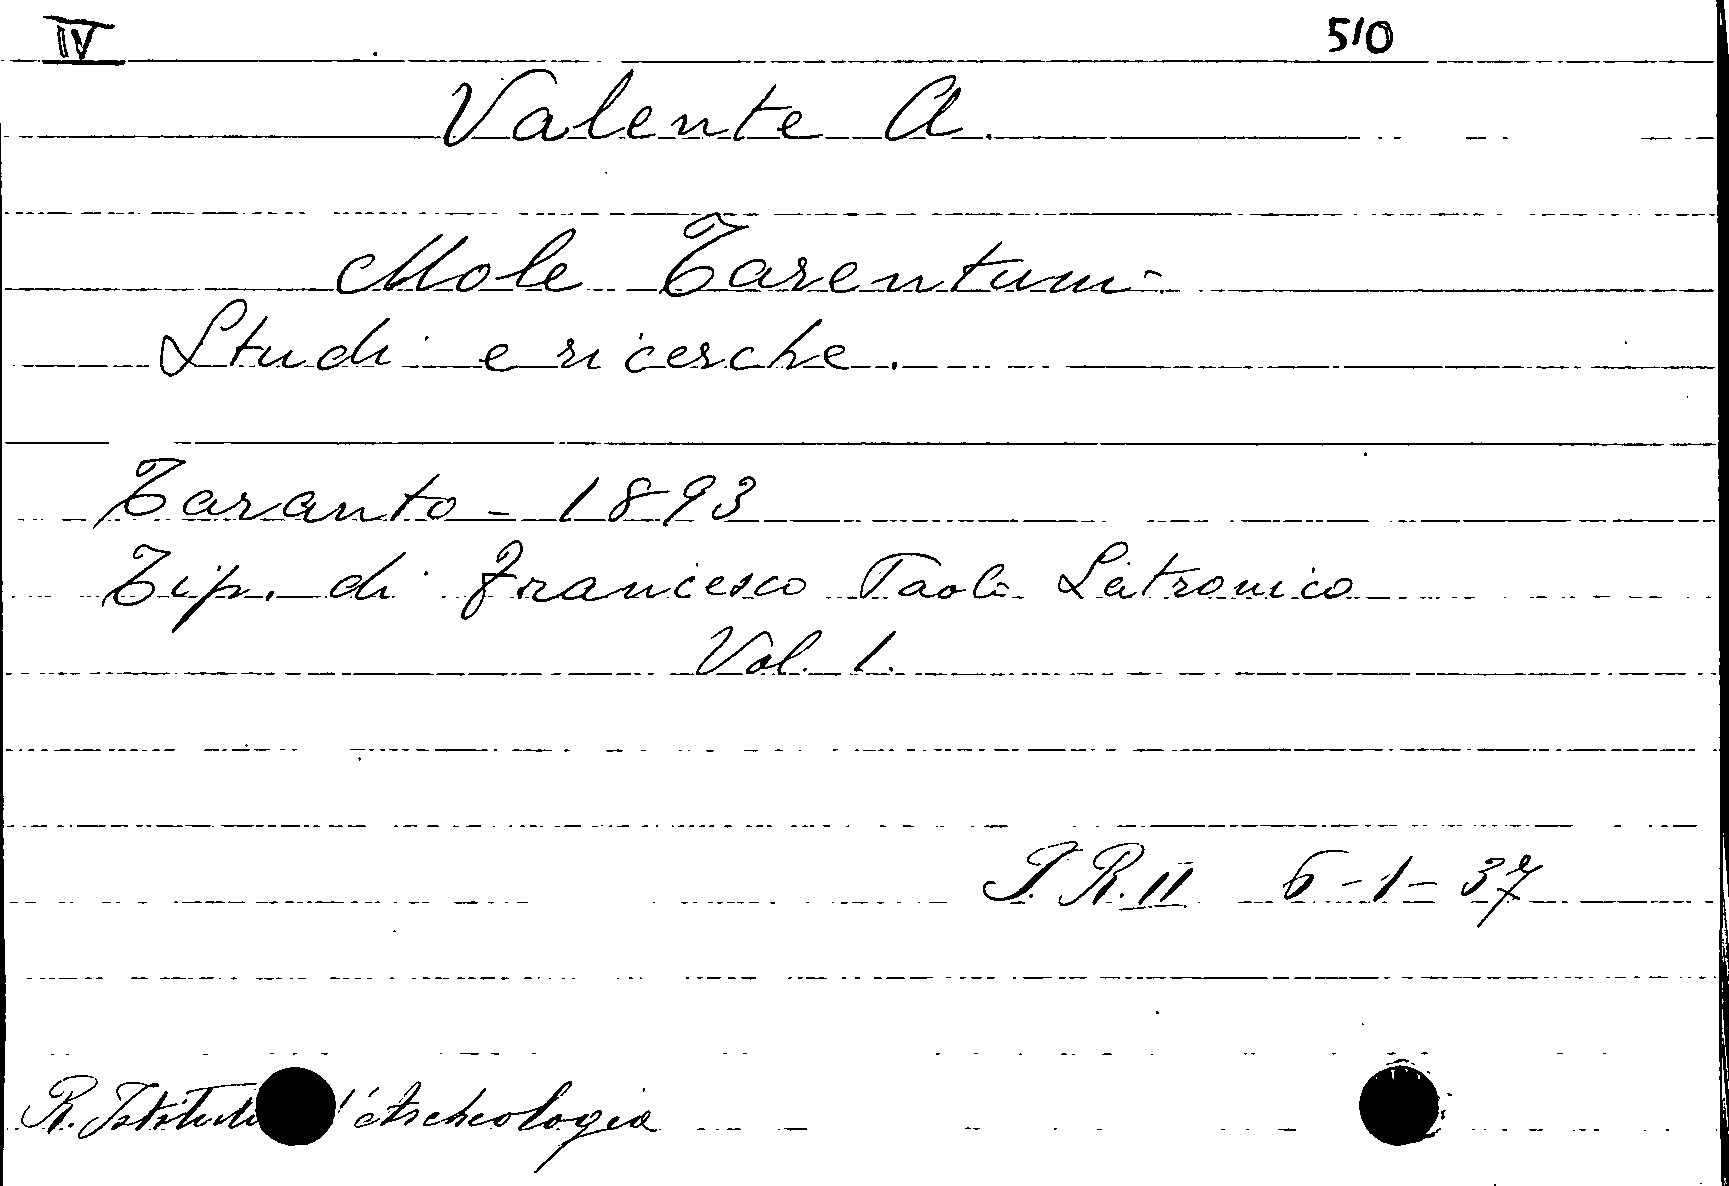 IV 510
Valente A.
Mole Tarentum-
Studi e ricerche.
Taranto - 1893
Tip. di Francesco Paolo Latronico
Vol. 1.
I. R. II 6-1-37
R. Istituto d'Archeologia